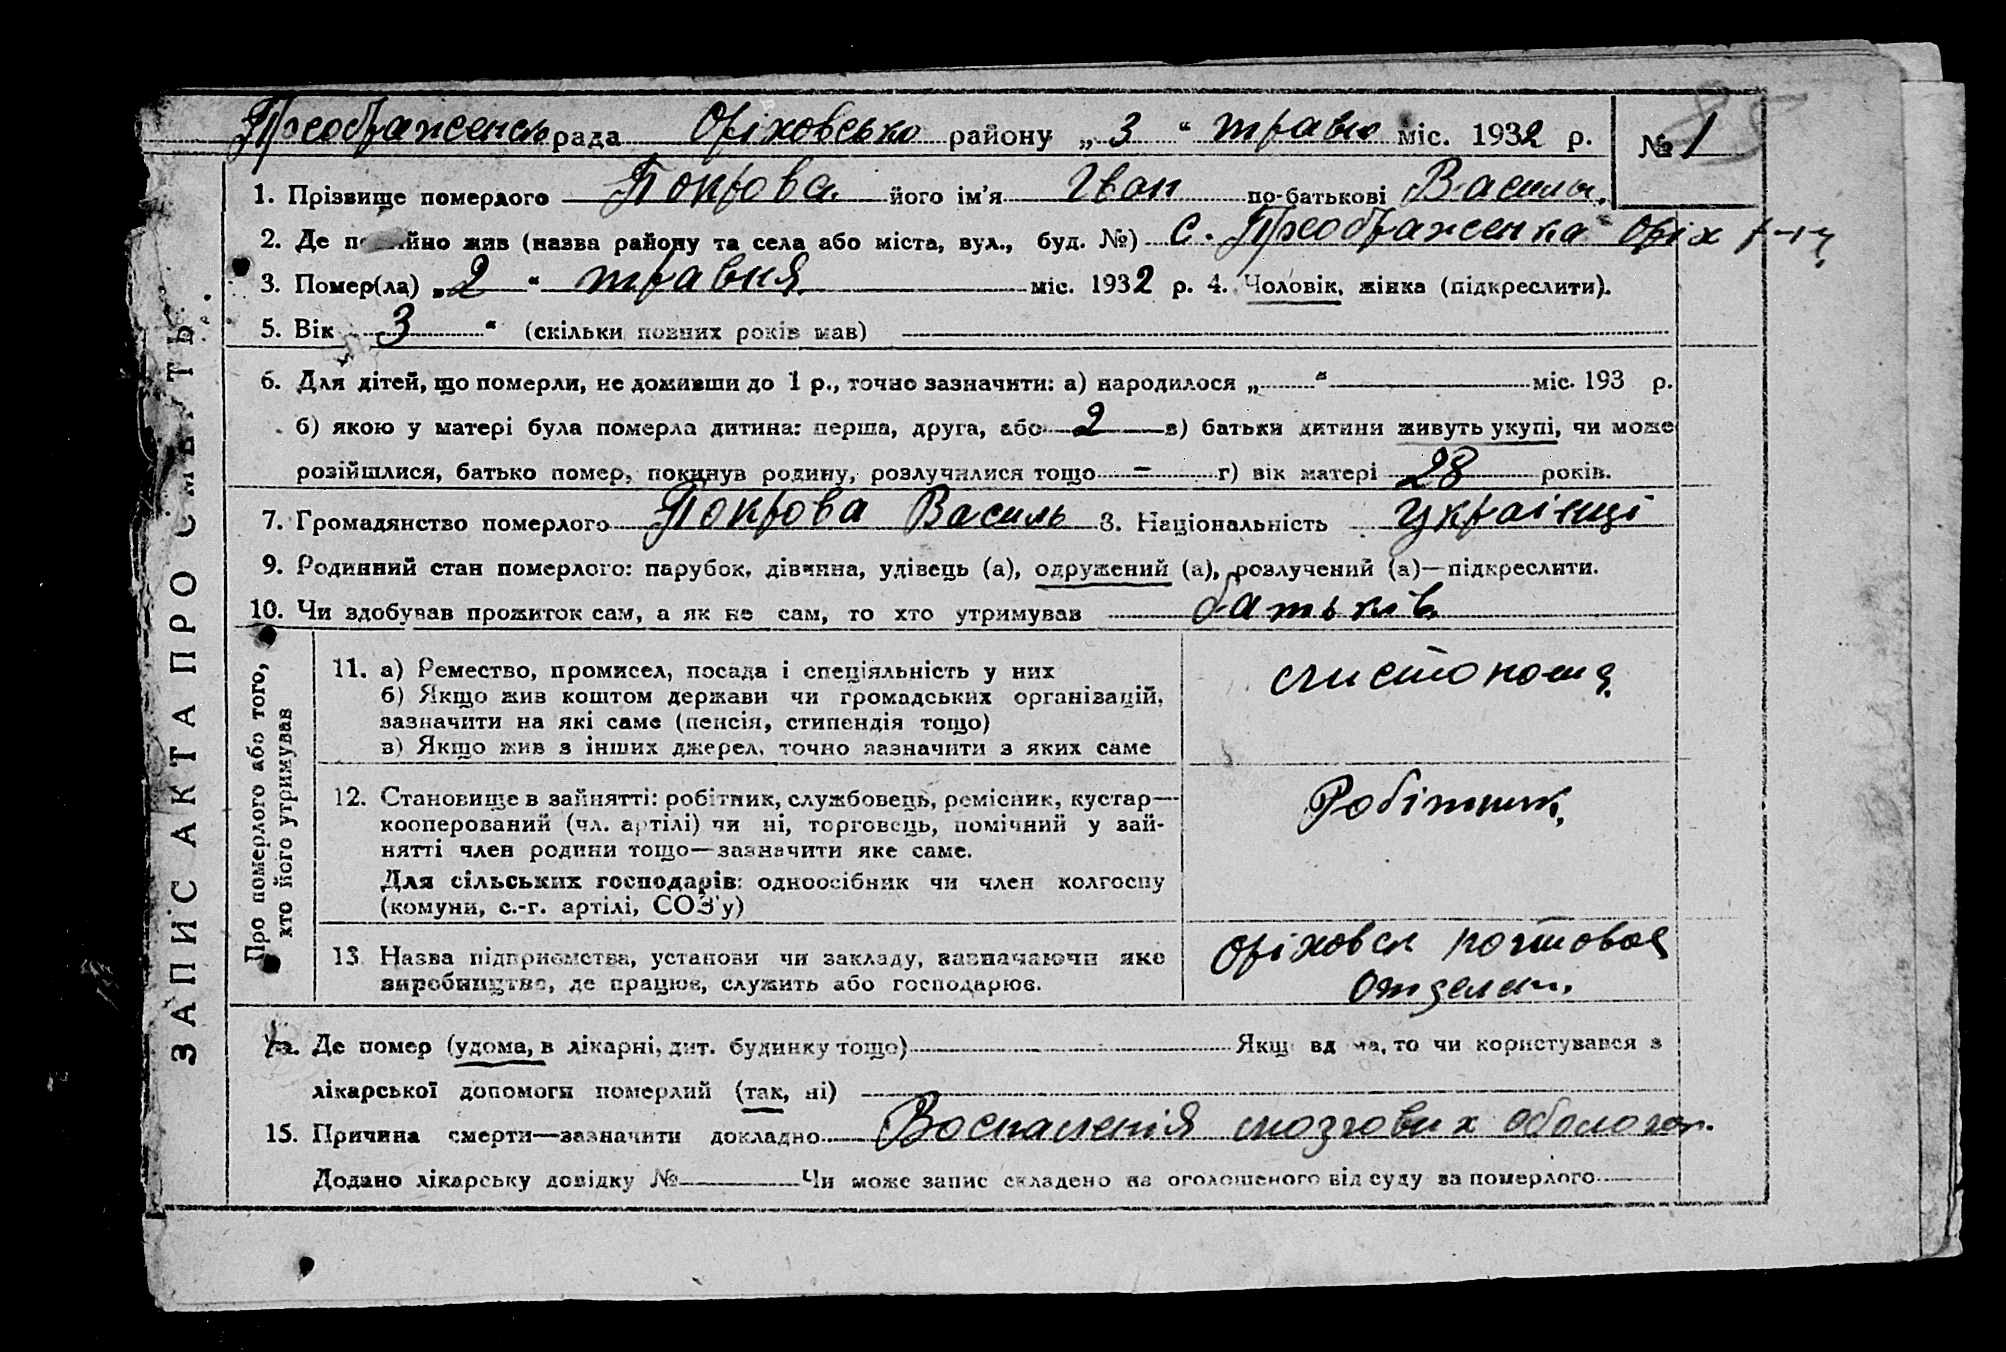 Преображенськ рада Оріховсько району „3“ травня міс. 1932 р. № 1
1. Прізвище померлого Покрова його ім'я Іван по-батькові Василь.
2. Де п йно жив (назва району та села або міста, вул., буд. №) с. Преображенка Оріх
3. Помер(ла) „2“ травня міс. 1932 р. 4. Чоловік, жінка (підкреслити).
5. Вік 3 “ (скільки повних років мав)
6. Для дітей, що померли, не доживши до 1 р., точно зазначити: а) народилося „ “ міс. 193 р.
б) якою у матері була померла дитина: перша, друга, або 2 в) батьки дитини живуть укупі, чи може
розійшлися, батько помер, покинув родину, розлучилися тощо = г) вік матері 28 років.
7. Громадянство померлого Покрова Василь 8. Національність Українці
9. Родинний стан померлого: парубок, дівчина, удівець (а), одружений (а), розлучений (а)—підкреслити.
10. Чи здобував прожиток сам, а як не сам, то хто утримував батьків
ЗАПИС АКТА ПРО СМЕРТЬ
Про померлого або того,
хто його утримував
11. а) Ремество, промисел, посада і спеціяльність у них
б) Якщо жив коштом держави чи громадських організацій,
зазначити на які саме (пенсія, стипендія тощо)
в) Якщо жив з інших джерел, точно зазначити з яких саме
листоноша
12. Становище в зайнятті: робітник, службовець, ремісник, кустар—
кооперований (чл. артілі) чи ні, торговець, помічний у зай-
нятті член родини тощо—зазначити яке саме.
Для сільських господарів: одноосібник чи член колгоспу
(комуни, с.-г. артілі, СОЗ'у)
Робітник
13. Назва підприємства, установи чи закладу, зазначаючи яке
виробництво, де працює, служить або господарює.
Оріховск почтовоя
отделен.
Де помер (удома, в лікарні, дит. будинку тощо) Якщ вд ма, то чи користувався з
лікарської допомоги померлий (так, ні)
15. Причина смерти—зазначити докладно Воспаленія мозгових оболочок.
Додано лікарську довідку № Чи може запис складено на оголошеного від суду за померлого